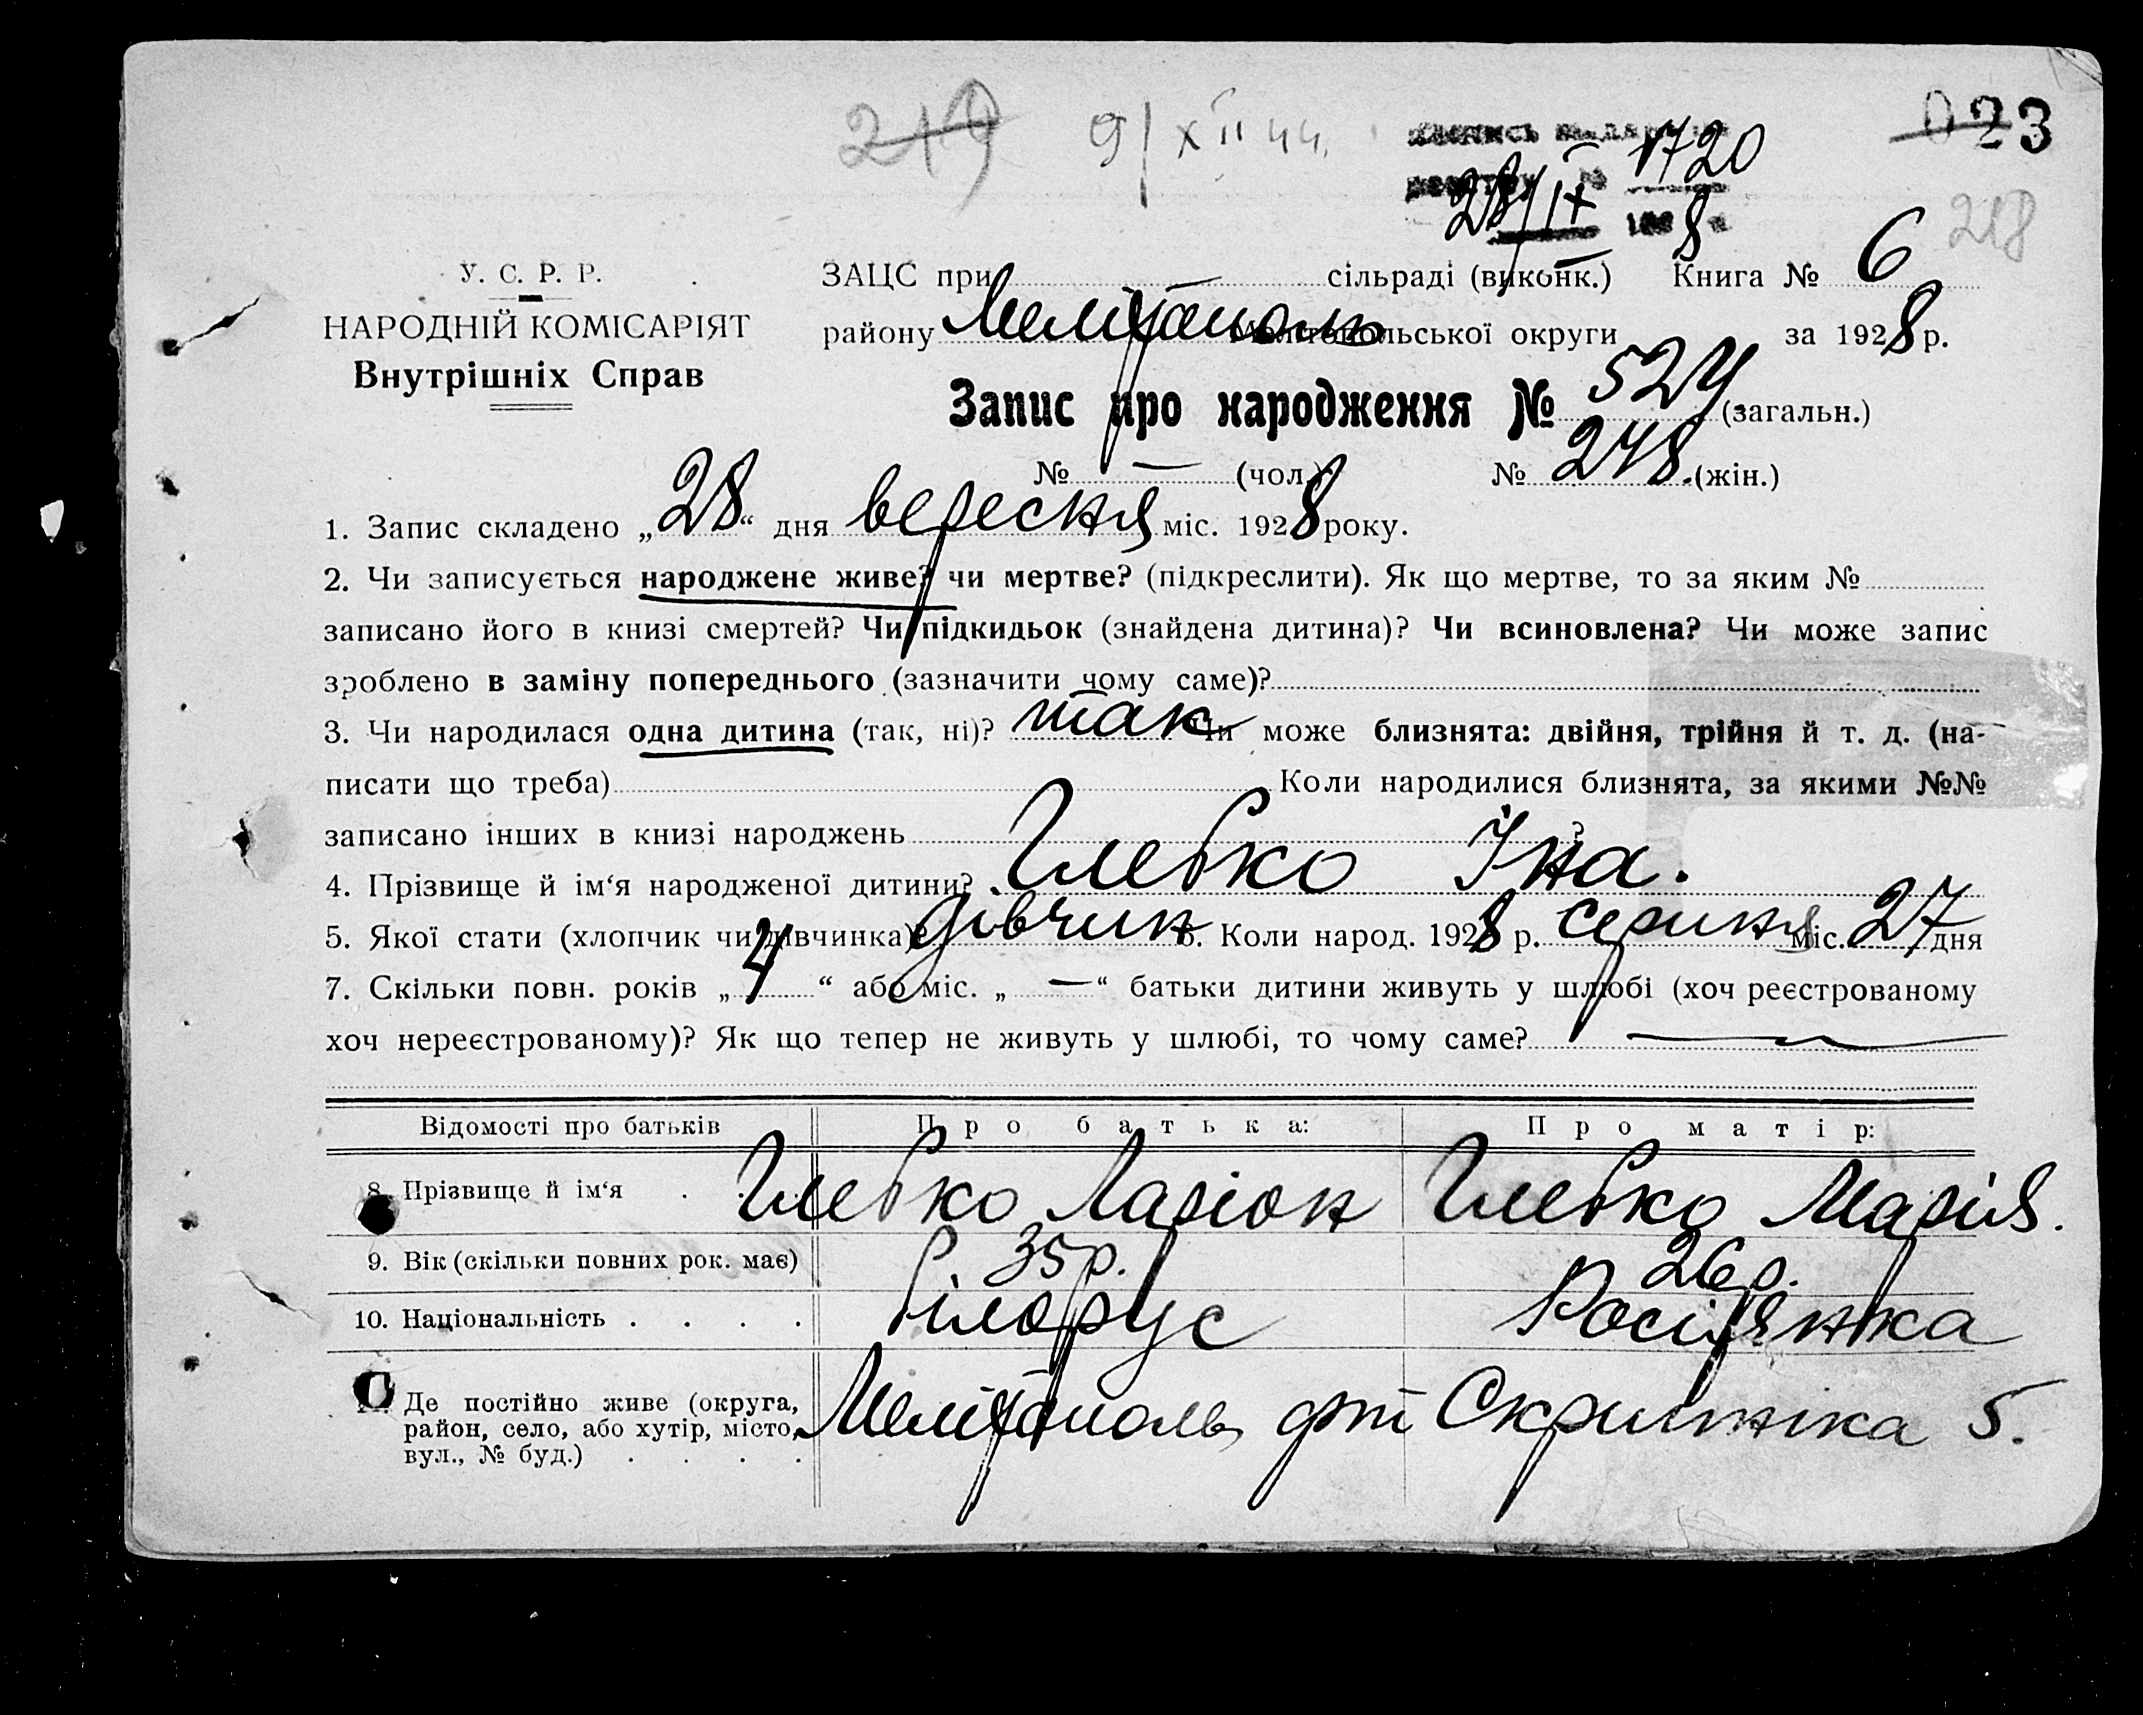 219 9/XII 44. 023
1720
28/IX 8 218
У. С. Р. Р. ЗАЦС при — сільраді (виконк.) Книга № 6
НАРОДНІЙ КОМІСАРІЯТ району Мелітополь Мелітопольської округи за 1928 р.
Внутрішніх Справ
Запис про народження № 524 (загальн.)
№ — (чол.) № 248. (жін.)
1. Запис складено „28“ дня вересня міс. 1928 року.
2. Чи записується народжене живе? чи мертве? (підкреслити). Як що мертве, то за яким №
записано його в книзі смертей? Чи підкидьок (знайдена дитина)? Чи всиновлена? Чи може запис
зроблено в заміну попереднього (зазначити чому саме)?
3. Чи народилася одна дитина (так, ні)? так Чи може близнята: двійня, трійня й т. д. (на-
писати що треба) Коли народилися близнята, за якими №№
записано інших в книзі народжень ?
4. Прізвище й ім‘я народженої дитини? Глебко Іна.
5. Якої стати (хлопчик чи дівчинка)? дівчин 6. Коли народ. 1928 р. серпня міс. 27 дня
7. Скільки повн. років „4“ або міс. „—“ батьки дитини живуть у шлюбі (хоч реєстрованому
хоч нереєстрованому)? Як що тепер не живуть у шлюбі, то чому саме? —
Відомості про батьків Про батька: Про матір:
8. Прізвище й ім‘я . . . Глебко Ларіон Глебко Марія.
9. Вік (скільки повних рок. має) 35 р. 26 р.
10. Національність . . . . Білорус Росіянка
Де постійно живе (округа,
район, село, або хутір, місто, Мелітополь Скрипніка 5.
вул., № буд.) . . . .